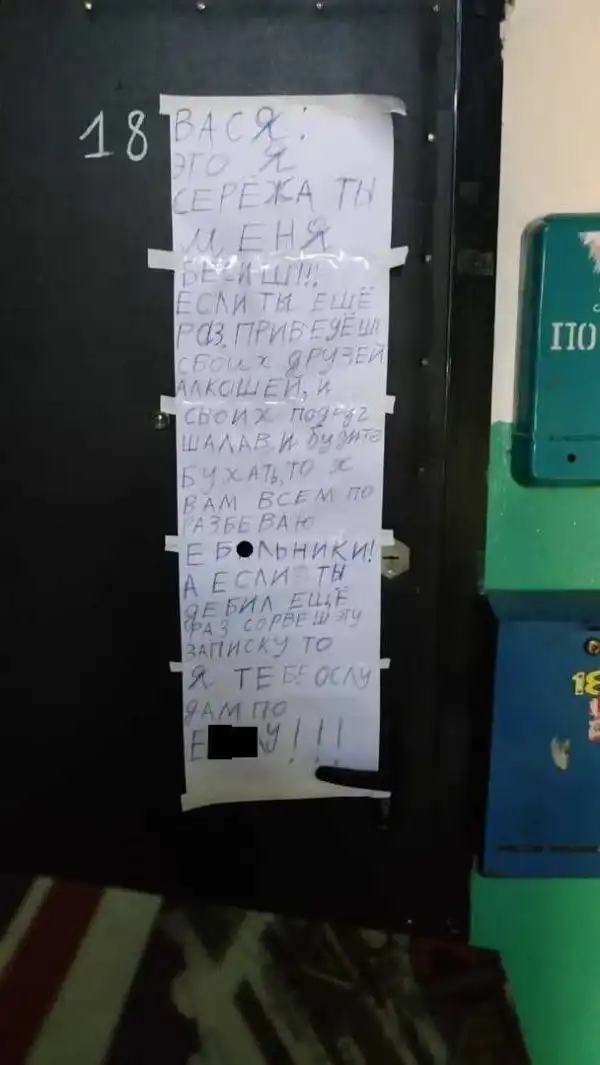 18
ВАСЯ!
ЭТО Я
СЕРЁЖА ТЫ
МЕНЯ
БЕСИШ!!!
ЕСЛИ ТЫ ЕЩЁ
РАЗ ПРИВЕДЁШ
СВОИХ ДРУЗЕЙ
АЛКОШЕЙ, И
СВОИХ ПОДРУГ
ШАЛАВ, И БУДИТЕ
БУХАТЬ, ТО Я
ВАМ ВСЕМ ПО
РАЗБЕВАЮ
ЕБ ЛЬНИКИ!
А ЕСЛИ ТЫ
ДЕБИЛ ЕЩЁ
РАЗ СОРВЕШ ЭТУ
ЗАПИСКУ ТО
Я ТЕБЕ ОСЛУ
ДАМ ПО
Е У!!!
ПО
18